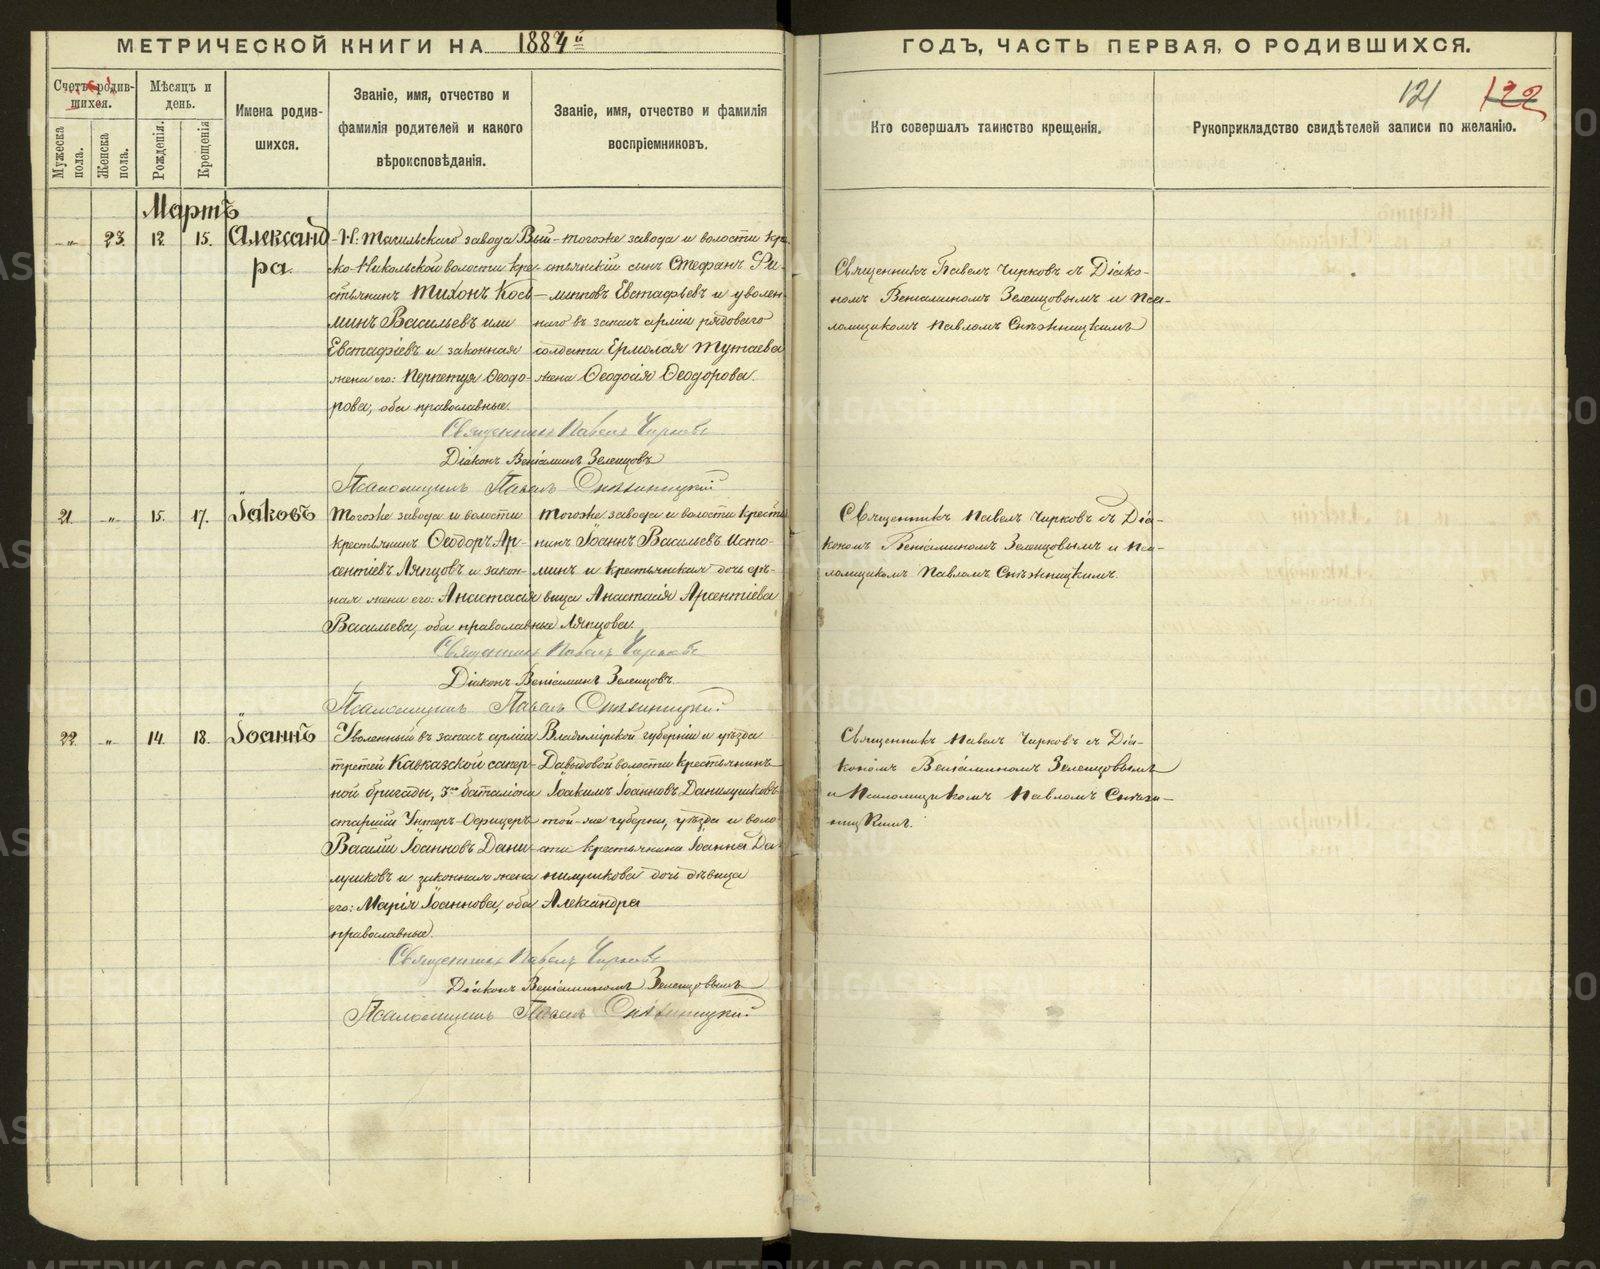 МЕТРИЧЕСКОЙ КНИГИ НА 1884й
ГОДЪ, ЧАСТЬ ПЕРВАЯ, О РОДИВШИХСЯ.
121 122
Счетъ родив-
шихся.
Мужеска
пола.
Женска
пола.
Мѣсяцъ и
день.
Рожденія.
Крещенія
Имена родив-
шихся.
Званіе, имя, отчество и
фамилія родителей и какого
вѣроисповѣданія.
Званіе, имя, отчество и фамилія
воспріемниковъ.
Кто совершалъ таинство крещенія.
Рукоприкладство свидѣтелей записи по желанію.
Мартъ
„ 23. 12 15. Александ-
ра.
Н: Тагильскаго завода Вый-
ско-Никольской волости кре-
стьянинъ Тихонъ Кось-
минъ Васильевъ или
Евстафіевъ и законная
жена его: Перпетуя Ѳеодо-
рова, оба православные.
тогоже завода и волости кре-
стьянскій сынъ Стефанъ Фи-
липповъ Евстафьевъ и уволен-
наго въ запас арміи рядоваго
солдата Ермолая Тутаева
жена Ѳеодосія Ѳеодорова.
Священникъ Павелъ Чирковъ съ Діако-
номъ Веніаминомъ Зеленцовымъ и Пса-
ломщикомъ Павломъ Снѣжницкимъ
Священникъ Павелъ Чирковъ
Діаконъ Веніаминъ Зеленцовъ
Псаломщикъ Павелъ Снѣжницкій
21. „ 15. 17. Іаковъ
Тогоже завода и волости
крестьянинъ Ѳеодоръ Ар-
сентіевъ Ляпцовъ и закон-
ная жена его: Анастасія
Васильева, оба православные
Тогоже завода и волости кресть-
нинъ Іоаннъ Васильевъ Исто-
минъ и крестьянская дочь дѣ-
вица Анастасія Арсентіева
Ляпцова.
Священникъ Павелъ Чирковъ съ Діа-
кономъ Веніаминомъ Зеленцовымъ и Пса-
ломщикомъ Павломъ Снѣжницкимъ.
Священникъ Павелъ Чирковъ
Діаконъ Веніаминъ Зеленцовъ.
Псаломщикъ Павелъ Снѣжницкій
22. „ 14. 18. Іоаннъ
Уволенный въ запасъ арміи
третей Кавказской сапер-
ной бригады, 3го баталіона
старшій Унтеръ-Офицеръ
Василій Іоанновъ Дани-
лушковъ и законная жена
его: Марія Іоаннова, оба
православные.
Владимірской губерніи и уѣзда
Давыдовой волости крестьянинъ
Іоакимъ Іоанновъ Данилушковъ
той-же губерніи, уѣзда и воло
сти крестьянина Іоанна Да-
нилушкова дочь дѣвица
Александра
Священникъ Павелъ Чирковъ съ Діа-
кономъ Веніаминомъ Зеленцовымъ
и Псаломщикомъ Павломъ Снѣж-
ницкимъ.
Священникъ Павелъ Чирковъ
Діаконъ Веніаминомъ Зеленцовымъ
Псаломщикъ Павелъ Снѣжницкій
METRIKI.GASO-URAL.RU